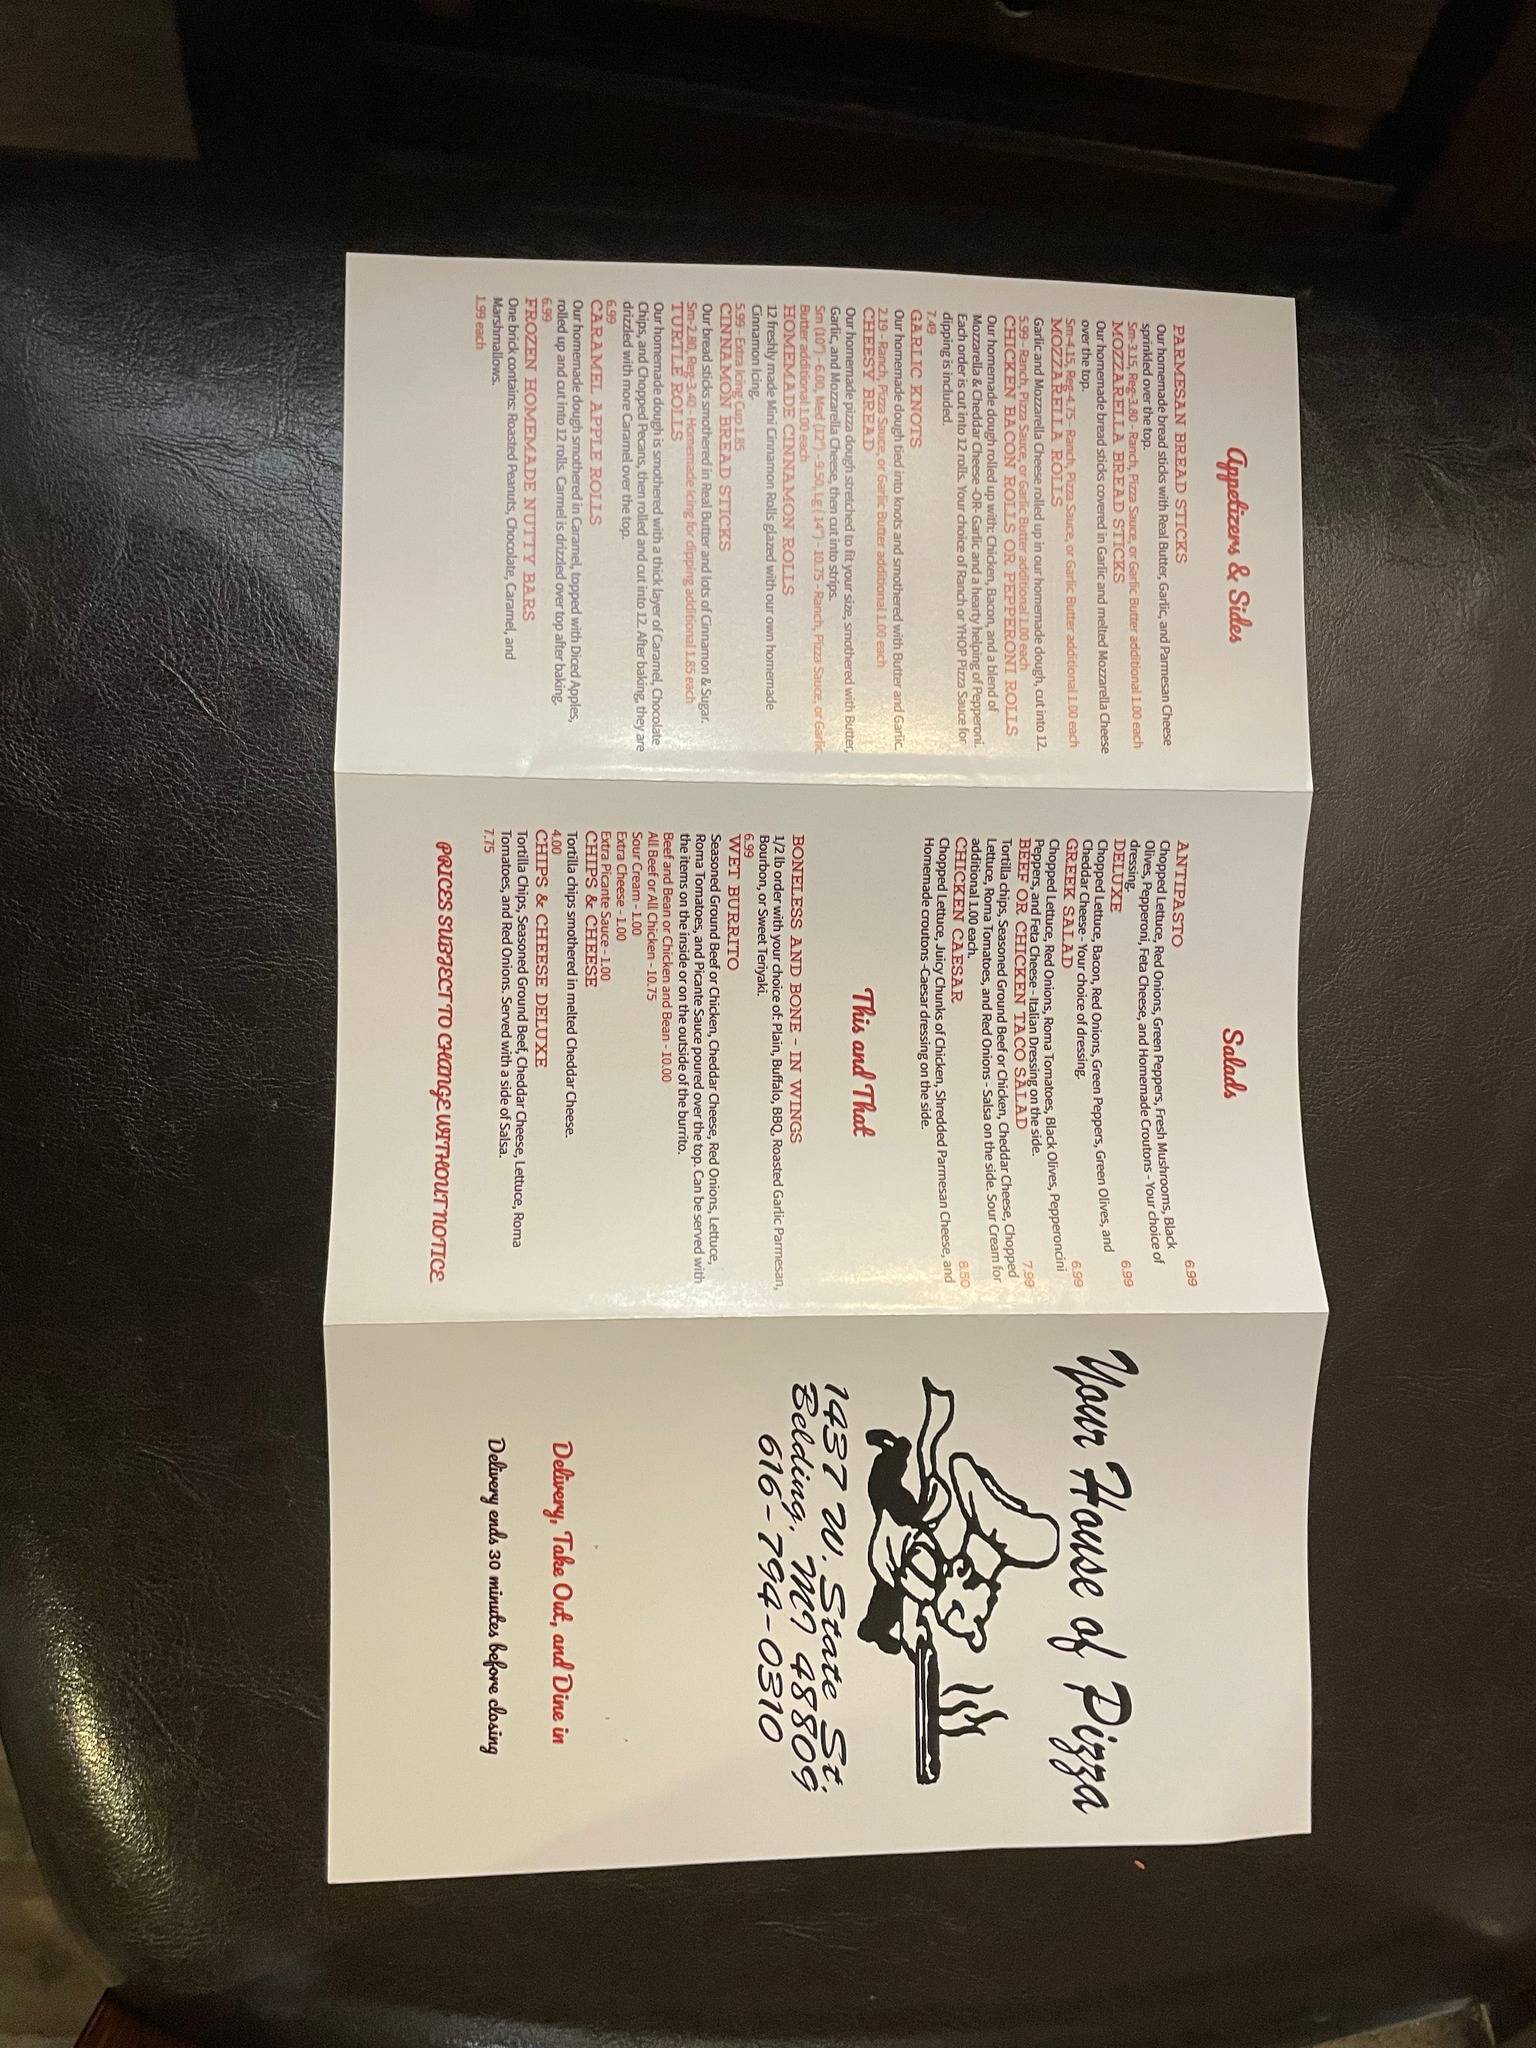 Appetizers & Sides
PARMESAN BREAD STICKS
Our homemade bread sticks with Real Butter, Garlic, and Parmesan Cheese
sprinkled over the top.
Sm-3.15, Reg-3.80 - Ranch, Pizza Sauce, or Garlic Butter additional 1.00 each
MOZZARELLA BREAD STICKS
Our homemade bread sticks covered in Garlic and melted Mozzarella Cheese
over the top.
Sm-4.15, Reg-4.75 - Ranch, Pizza Sauce, or Garlic Butter additional 1.00 each
MOZZARELLA ROLLS
Garlic and Mozzarella Cheese rolled up in our homemade dough, cut into 12.
5.99 - Ranch, Pizza Sauce, or Garlic Butter additional 1.00 each
CHICKEN BACON ROLLS OR PEPPERONI ROLLS
Our homemade dough rolled up with: Chicken, Bacon, and a blend of
Mozzarella & Cheddar Cheese -OR- Garlic and a hearty helping of Pepperoni.
Each order is cut into 12 rolls. Your choice of Ranch or YHOP Pizza Sauce for
dipping is included.
7.49
GARLIC KNOTS
Our homemade dough tied into knots and smothered with Butter and Garlic.
2.19 - Ranch, Pizza Sauce, or Garlic Butter additional 1.00 each
CHEESY BREAD
Our homemade pizza dough stretched to fit your size, smothered with Butter,
Garlic, and Mozzarella Cheese, then cut into strips.
Sm (10") - 6.00, Med (12") - 9.50, Lg (14") - 10.75 - Ranch, Pizza Sauce, or Garlic
Butter additional 1.00 each
HOMEMADE CINNAMON ROLLS
12 freshly made Mini Cinnamon Rolls glazed with our own homemade
Cinnamon Icing.
5.99 - Extra Icing Cup 1.85
CINNAMON BREAD STICKS
Our bread sticks smothered in Real Butter and lots of Cinnamon & Sugar.
Sm-2.80, Reg-3.40 - Homemade Icing for dipping additional 1.85 each
TURTLE ROLLS
Our homemade dough is smothered with a thick layer of Caramel, Chocolate
Chips, and Chopped Pecans, then rolled and cut into 12. After baking, they are
drizzled with more Caramel over the top.
6.99
CARAMEL APPLE ROLLS
Our homemade dough smothered in Caramel, topped with Diced Apples,
rolled up and cut into 12 rolls. Carmel is drizzled over top after baking.
6.99
FROZEN HOMEMADE NUTTY BARS
One brick contains: Roasted Peanuts, Chocolate, Caramel, and
Marshmallows.
1.99 each
Salads
ANTIPASTO 6.99
Chopped Lettuce, Red Onions, Green Peppers, Fresh Mushrooms, Black
Olives, Pepperoni, Feta Cheese, and Homemade Croutons - Your choice of
dressing.
DELUXE 6.99
Chopped Lettuce, Bacon, Red Onions, Green Peppers, Green Olives, and
Cheddar Cheese - Your choice of dressing.
GREEK SALAD 6.99
Chopped Lettuce, Red Onions, Roma Tomatoes, Black Olives, Pepperoncini
Peppers, and Feta Cheese - Italian Dressing on the side.
BEEF OR CHICKEN TACO SALAD 7.99
Tortilla chips, Seasoned Ground Beef or Chicken, Cheddar Cheese, Chopped
Lettuce, Roma Tomatoes, and Red Onions - Salsa on the side. Sour Cream for
additional 1.00 each.
CHICKEN CAESAR 8.50
Chopped Lettuce, Juicy Chunks of Chicken, Shredded Parmesan Cheese, and
Homemade croutons -Caesar dressing on the side.
This and That
BONELESS AND BONE - IN WINGS
1/2 lb order with your choice of: Plain, Buffalo, BBQ, Roasted Garlic Parmesan,
Bourbon, or Sweet Teriyaki.
6.99
WET BURRITO
Seasoned Ground Beef or Chicken, Cheddar Cheese, Red Onions, Lettuce,
Roma Tomatoes, and Picante Sauce poured over the top. Can be served with
the items on the inside or on the outside of the burrito.
Beef and Bean or Chicken and Bean - 10.00
All Beef or All Chicken - 10.75
Sour Cream - 1.00
Extra Cheese - 1.00
Extra Picante Sauce - 1.00
CHIPS & CHEESE
Tortilla chips smothered in melted Cheddar Cheese.
4.00
CHIPS & CHEESE DELUXE
Tortilla Chips, Seasoned Ground Beef, Cheddar Cheese, Lettuce, Roma
Tomatoes, and Red Onions. Served with a side of Salsa.
7.75
PRICES SUBJECT TO CHANGE WITHOUT NOTICE
Your House of Pizza
1437 W. State St.
Belding, MI 48809
616-794-0310
Delivery, Take Out, and Dine in
Delivery ends 30 minutes before closing